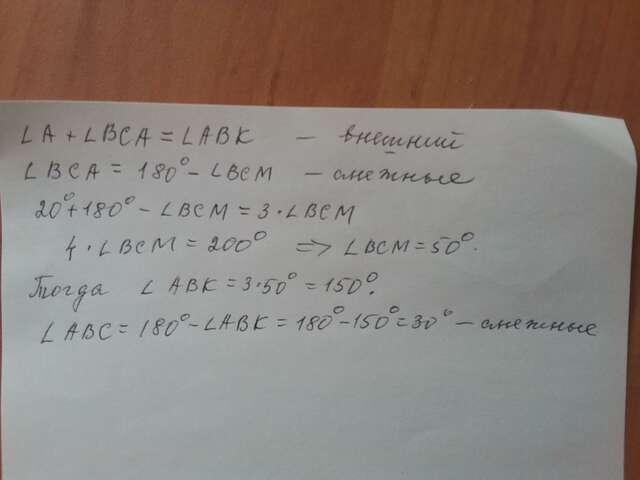 ∠A + ∠BCA = ∠ABK – внешний
∠BCA = 180° - ∠BCM – смежные
20° + 180° - ∠BCM = 3·∠BCM
4·∠BCM = 200° => ∠BCM = 50°.
Тогда ∠ABK = 3·50° = 150°.
∠ABC = 180° - ∠ABK = 180° - 150° = 30° – смежные